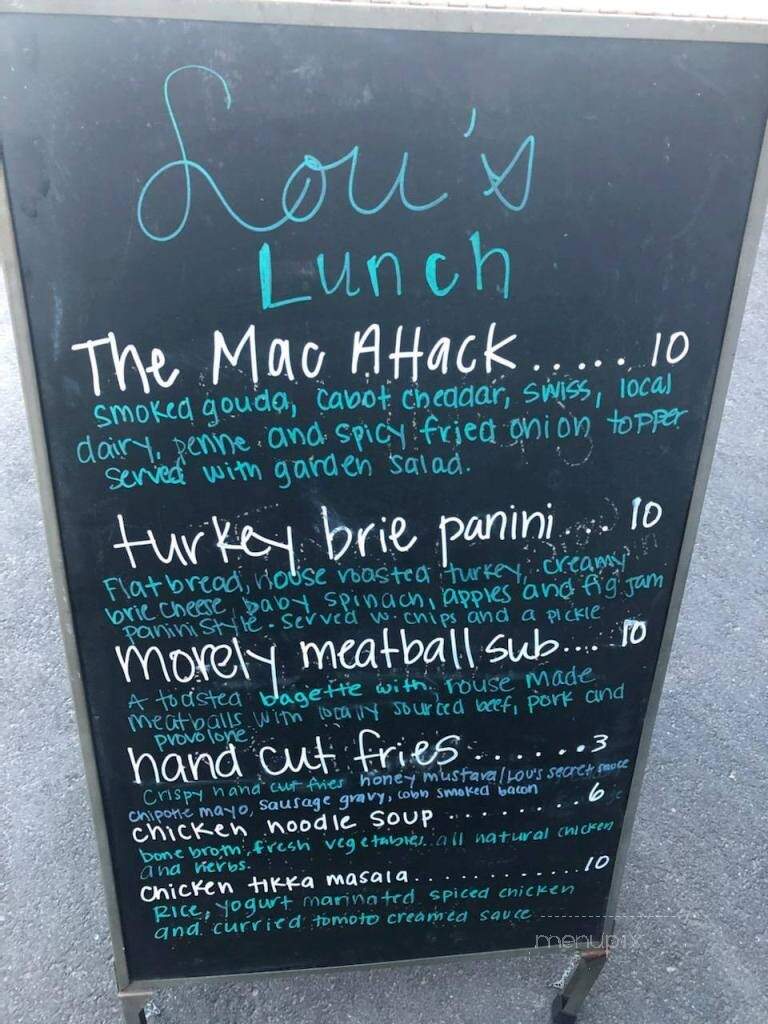 Lou's
Lunch
The Mac Attack..... 10
smoked gouda, cabot cheddar, swiss, local
dairy, penne and spicy fried onion topper
served with garden salad.
turkey brie panini... 10
Flatbread, house roasted turkey, creamy
brie cheese, baby spinach, apples and fig jam
panini style. served w. chips and a pickle
morely meatball sub.... 10
A toasted bagette with house made
meatballs with locally sourced beef, pork and
provolone
hand cut fries.......3
Crispy hand cut fries honey mustard/Lou's secret sauce
chipotle mayo, sausage gravy, cobb smoked bacon
chicken noodle soup .........6
bone broth, fresh vegetables, all natural chicken
and herbs.
chicken tikka masala..............10
Rice, yogurt marinated spiced chicken
and curried tomato creamed sauce
menupix